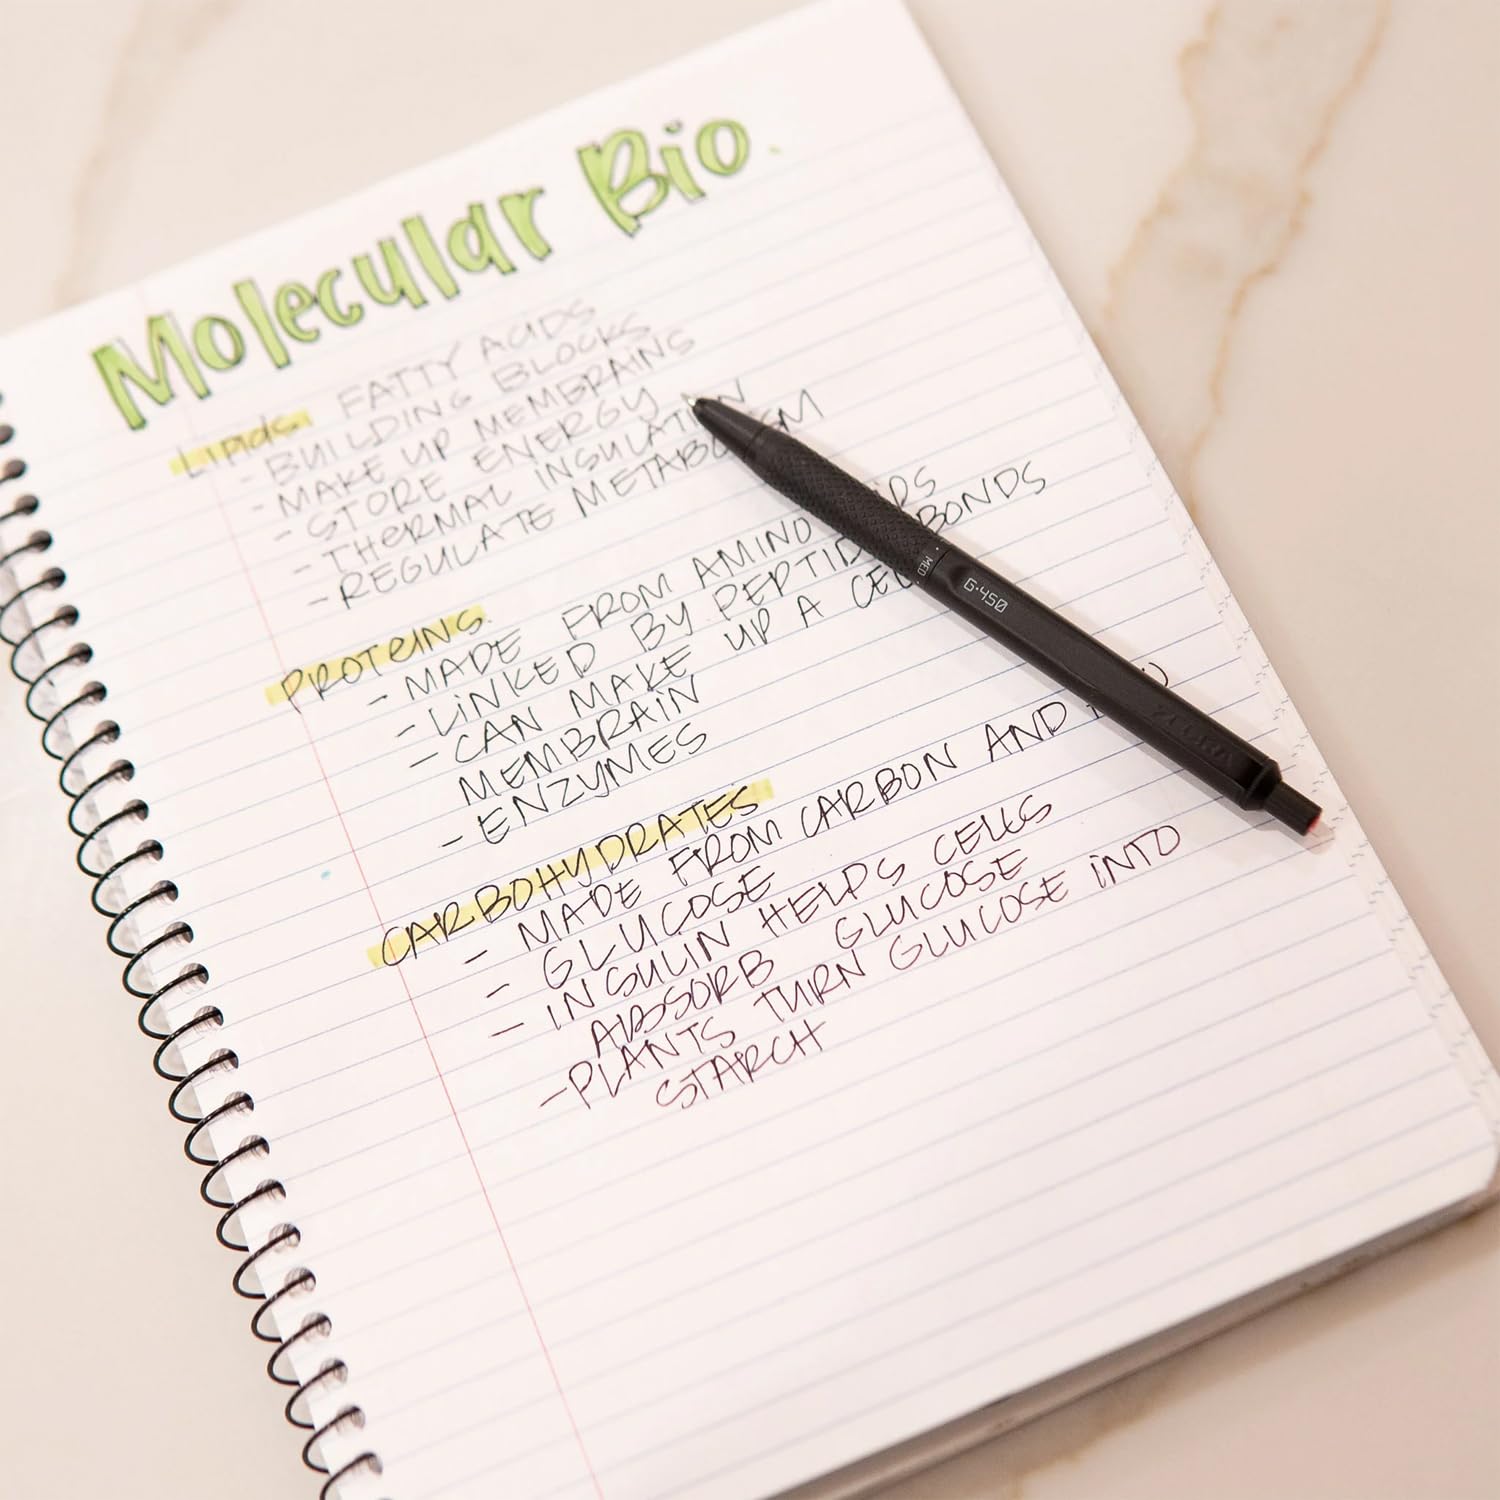 Molecular Bio.
Lipids: FATTY ACIDS
- BUILDING BLOCKS
- MAKE UP MEMBRAINS
- STORE ENERGY
- THERMAL INSULATION
- REGULATE METABOLISM
PROTEINS:
- MADE FROM AMINO
- LINKED BY PEPTIDE BONDS
- CAN MAKE UP A CELL
MEMBRAIN
- ENZYMES
CARBOHYDRATES
- MADE FROM CARBON AND
- GLUCOSE
- INSULIN HELPS CELLS
ABSORB GLUCOSE
- PLANTS TURN GLUCOSE INTO
STARCH
MED
G-450
ZEBRA